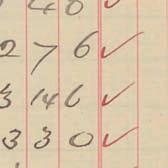 2 7 6 ✓
3 14 6 ✓
3 3 0 ✓